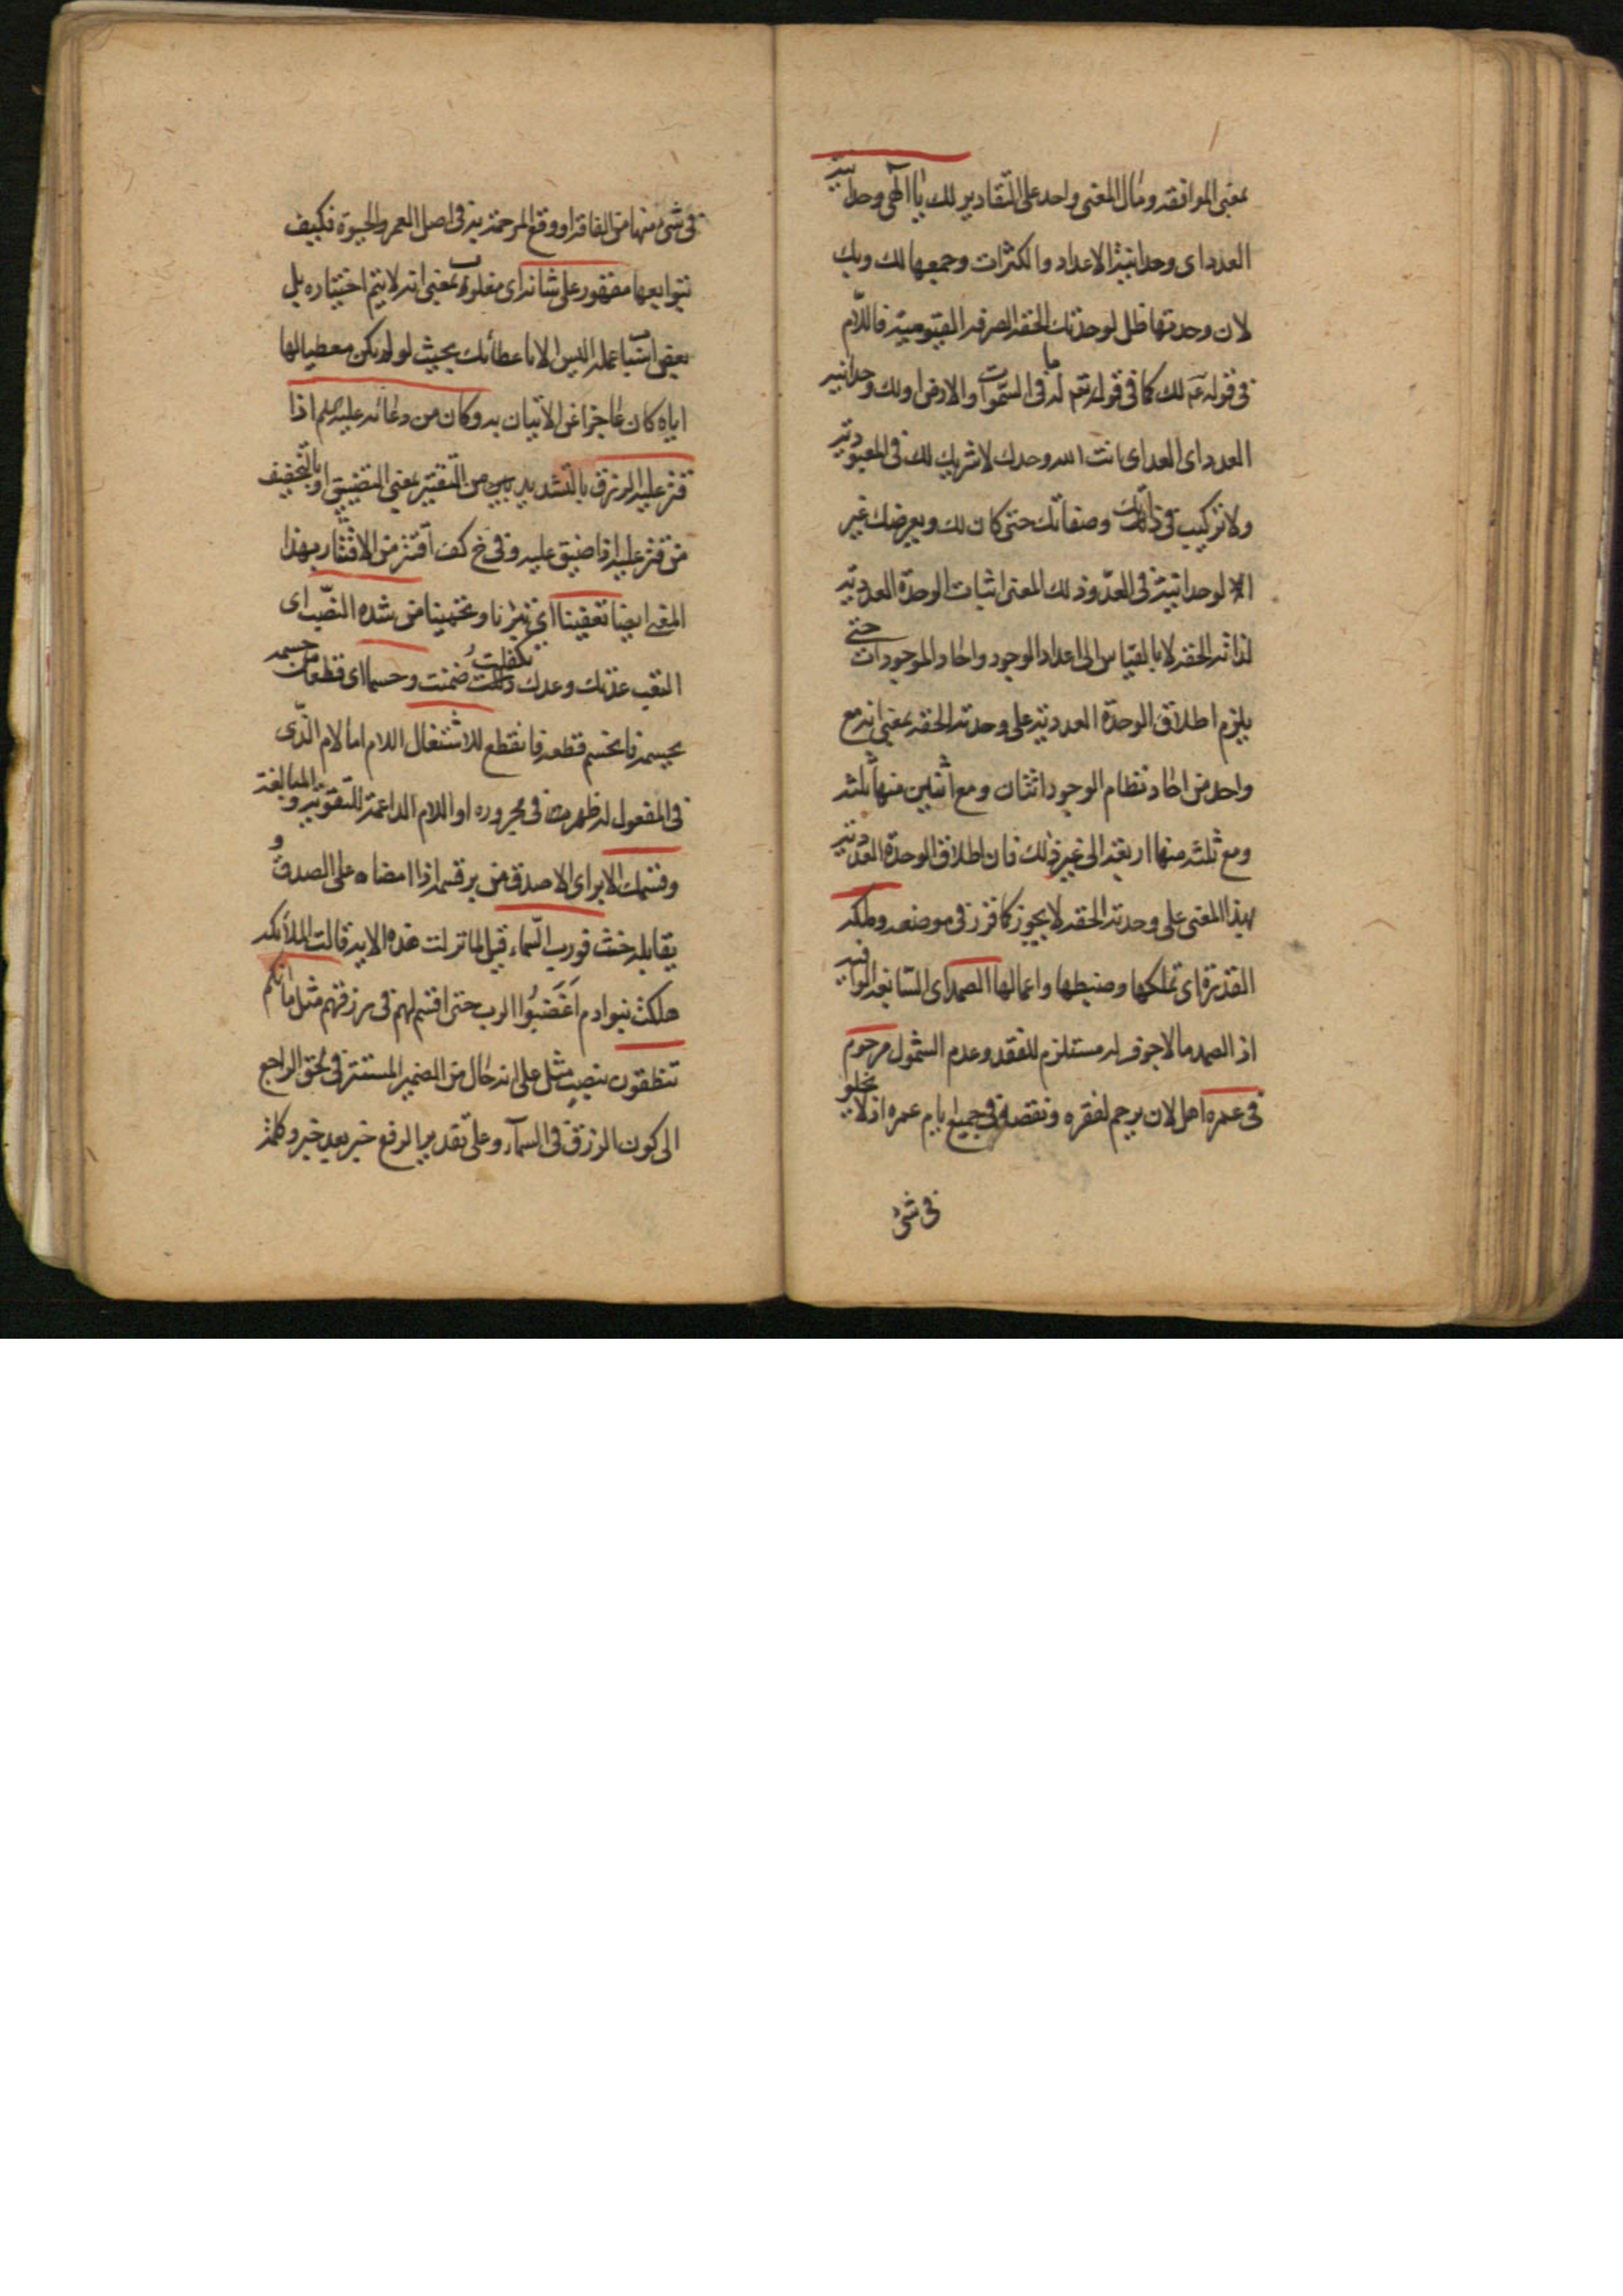 بمعنى الموافقه ومآل المعنى واحد على التقادير لك يا الٓهى وحدانية
العدد اى وحدانية الاعداد والكثرات وجميعها لك وبك
لان وحدتها ظل لوحدتك الحقه الصرفه القيومية فاللام
فى قوله عم لك كما فى قوله تعم له ما فى السموات والارض اولك وحدانية
العدد اى العد اى انت الله وحدك لاشريك لك فى المعبودية
ولا تركيب فى ذاتك وصفاتك حتى كان لك وبعرضك غير
الوحدانية فى العدّ وذلك المعنى اثبات الوحدة العددية
لذاته الحقه لا بالقياس الى اعداد الوجود واحاد الموجودات حتى
يلزم اطلاق الوحدة العددية على وحدته الحقه بمعنى انه مع
واحد من احاد نظام الوجود اثنان ومع اثنين منها ثلثه
ومع ثلثه منها اربعة الى غير ذلك فان اطلاق الوحدة العددية
بهذا المعنى على وحدته الحقه لا يجوز كما قرر فى موضعه وملكه
القدرة اى تملكها وضبطها واعمالها الصمد اى السابغه الوافيه
اذ الصمد ما لا جوف له مستلزم للفقد وعدم الشمول مرحوم
فى عمره اهل لان يرحم لفقره ونقصه فى جميع ايام عمره اذ لا يخلو
فى شئ
فى شئ منها من الفاقه او وقع المرحمة به فى اصل العمر والحيوة فكيف
بتوابعها مقهور على شانه اى مغلوب بمعنى انه لا يتم اختياره بل
بعض اسباب عمله اليس الا باعطائك بحيث لو لم تكن معطيا لها
اياه كان عاجزا عن الاتيان به وكان من دعائه عليه السلم اذا
قتر عليه الرزق بالتشديد من التقتير بمعنى التضييق او بالتخفيف
من قتر عليه اذا ضيق عليه وفى خ كف اقتر من الاقتار بهذا
المعنى ايضا تعفينا اى تبرئنا وتحمينا من شدة النصب اى
التعب عدتك وعدك تكفلت ضمنت وحسما اى قطعا من حسمه
يحسمه فانحسم قطعه فانقطع للاشتغال اللام اما لام الذى
فى المفعول له ظهرت فى مجروره او اللام الداعمة للتقوية والمبالغة
وقسمك الابر اى الاصدق من بر قسمه اذا امضاه على الصدق و
يقابله حنث فورب السماء قيل لما نزلت هذه الاية قالت الملائكه
هلكت بنوا دم اَغضَبُوا الرب حتى اقسم لهم فى رزقهم مثل ما انكم
تنطقون بنصب مثل على انه حال من الضمير المستتر فى لحق الراجع
الى كون الرزق فى السمآء وعلى تقدير الرفع خبر بعد خبر وكلمة